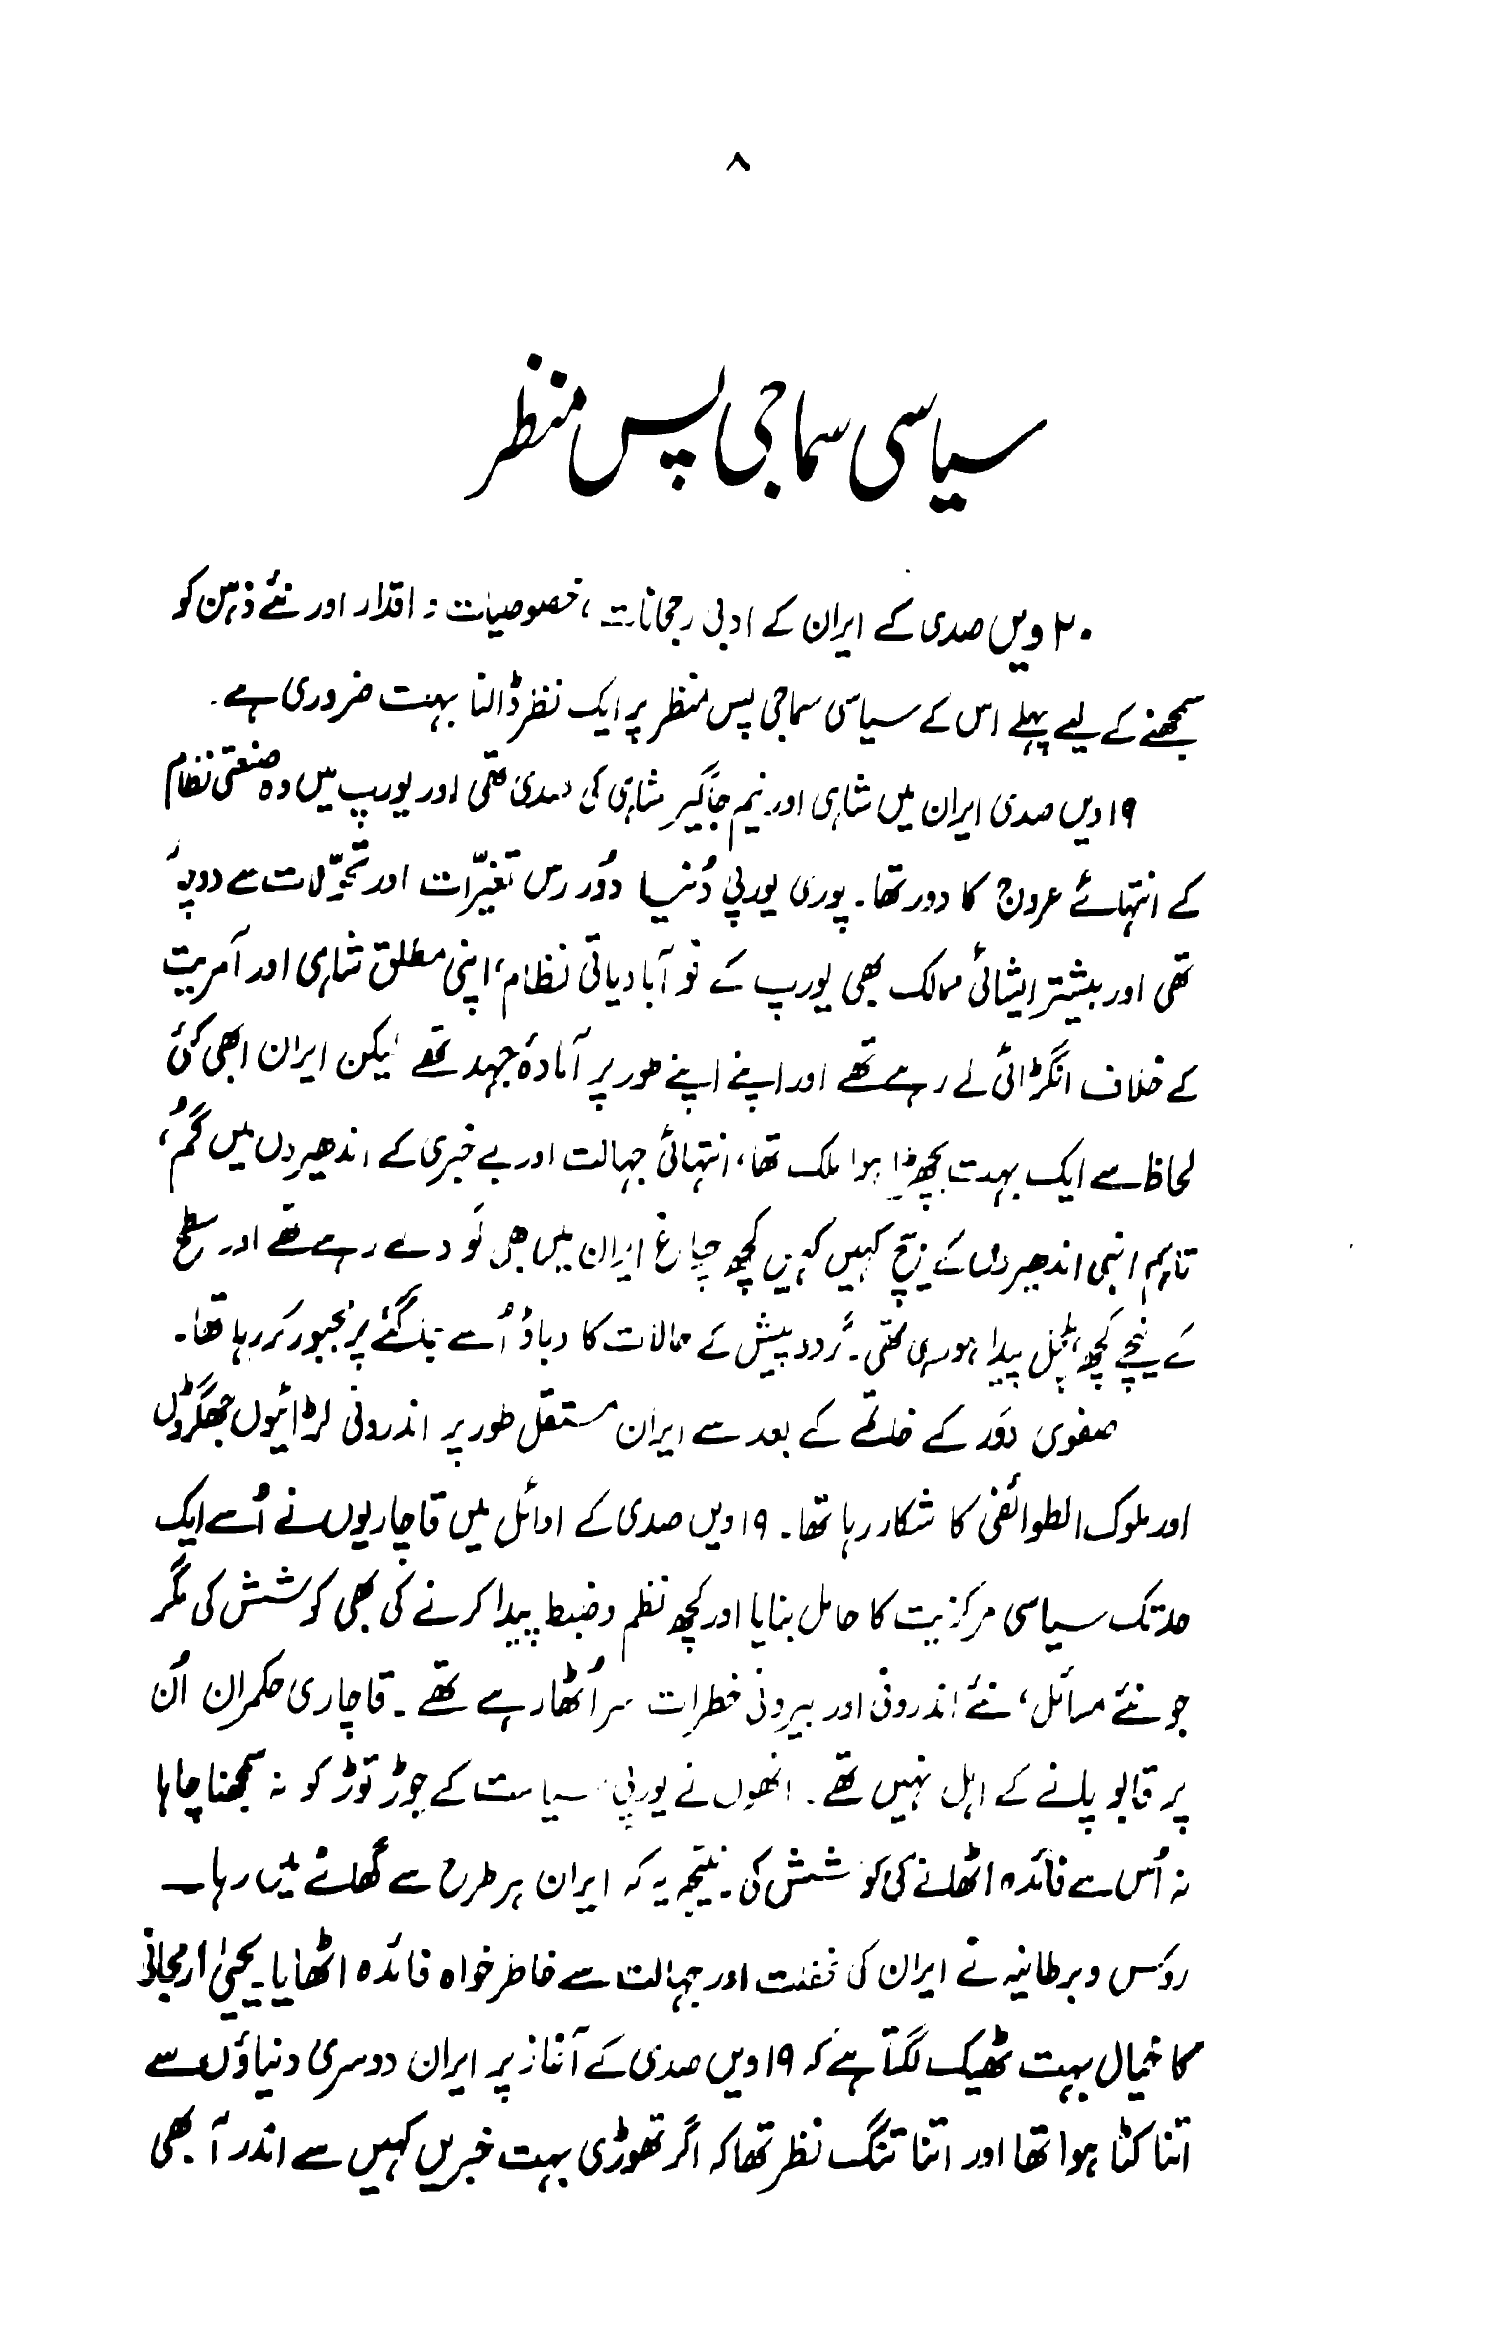 ۸
سیاسی سماجی پس منظر
۲۰ ویں صدی کے ایران کے ادبی رجحانات، خصوصیات و اقدار اور نئے ذہن کو
سمجھنے کے لیے پہلے اس کے سیاسی سماجی پس منظر پر ایک نظر ڈالنا بہت ضروری ہے۔
۱۹ویں صدی ایران میں شاہی اور نیم جاگیر شاہی کی صدی تھی اور یورپ میں وہ صنعتی نظام
کے انتہائے عروج کا دور تھا۔ پوری یورپی دُنیا دُور رس تغیّرات اور تحوّلات سے دوچار
تھی اور بیشتر ایشائی ممالک بھی یورپ کے نو آبادیاتی نظام، اپنی مطلق شاہی اور آمریت
کے خلاف انگڑائی لے رہے تھے اور اپنے اپنے طور پر آمادۂ جہد تھے لیکن ایران ابھی کئی
لحاظ سے ایک بہت بچھڑا ہوا ملک تھا، انتہائی جہالت اور بے خبری کے اندھیروں میں گُم،
تاہم انہی اندھیروں کے بیچ کہیں کہیں کچھ چراغ ایران میں بھی لَو دے رہے تھے اور سطح
کے نیچے کچھ ہلچل پیدا ہو رہی تھی۔ گردوپیش کے حالات کا دباؤ اُسے جاگنے پر مجبور کر رہا تھا۔
صفوی دَور کے خاتمے کے بعد سے ایران مستقل طور پر اندرونی لڑائیوں جھگڑوں
اور ملوک الطوائفی کا شکار رہا تھا۔ ۱۹ویں صدی کے اوائل میں قاچاریوں نے اُسے ایک
حد تک سیاسی مرکزیت کا حامل بنایا اور کچھ نظم و ضبط پیدا کرنے کی بھی کوشش کی مگر
جو نئے مسائل، نئے اندرونی اور بیرونی خطرات سر اُٹھا رہے تھے۔ قاچاری حکمران اُن
پر قابو پانے کے اہل نہیں تھے۔ انھوں نے یورپی سیاست کے جوڑ توڑ کو نہ سمجھنا چاہا
نہ اُس سے فائدہ اٹھانے کی کوشش کی۔ نتیجہ یہ کہ ایران ہر طرح سے گھاٹے میں رہا۔
روس و برطانیہ نے ایران کی غفلت اور جہالت سے خاطر خواہ فائدہ اٹھایا۔ یحییٰ
کا خیال بہت ٹھیک لگتا ہے کہ ۱۹ویں صدی کے آغاز پر ایران دوسری دنیاؤں سے
اتنا کٹا ہوا تھا اور اتنا تنگ نظر تھا کہ اگر تھوڑی بہت خبریں کہیں سے اندر آ بھی